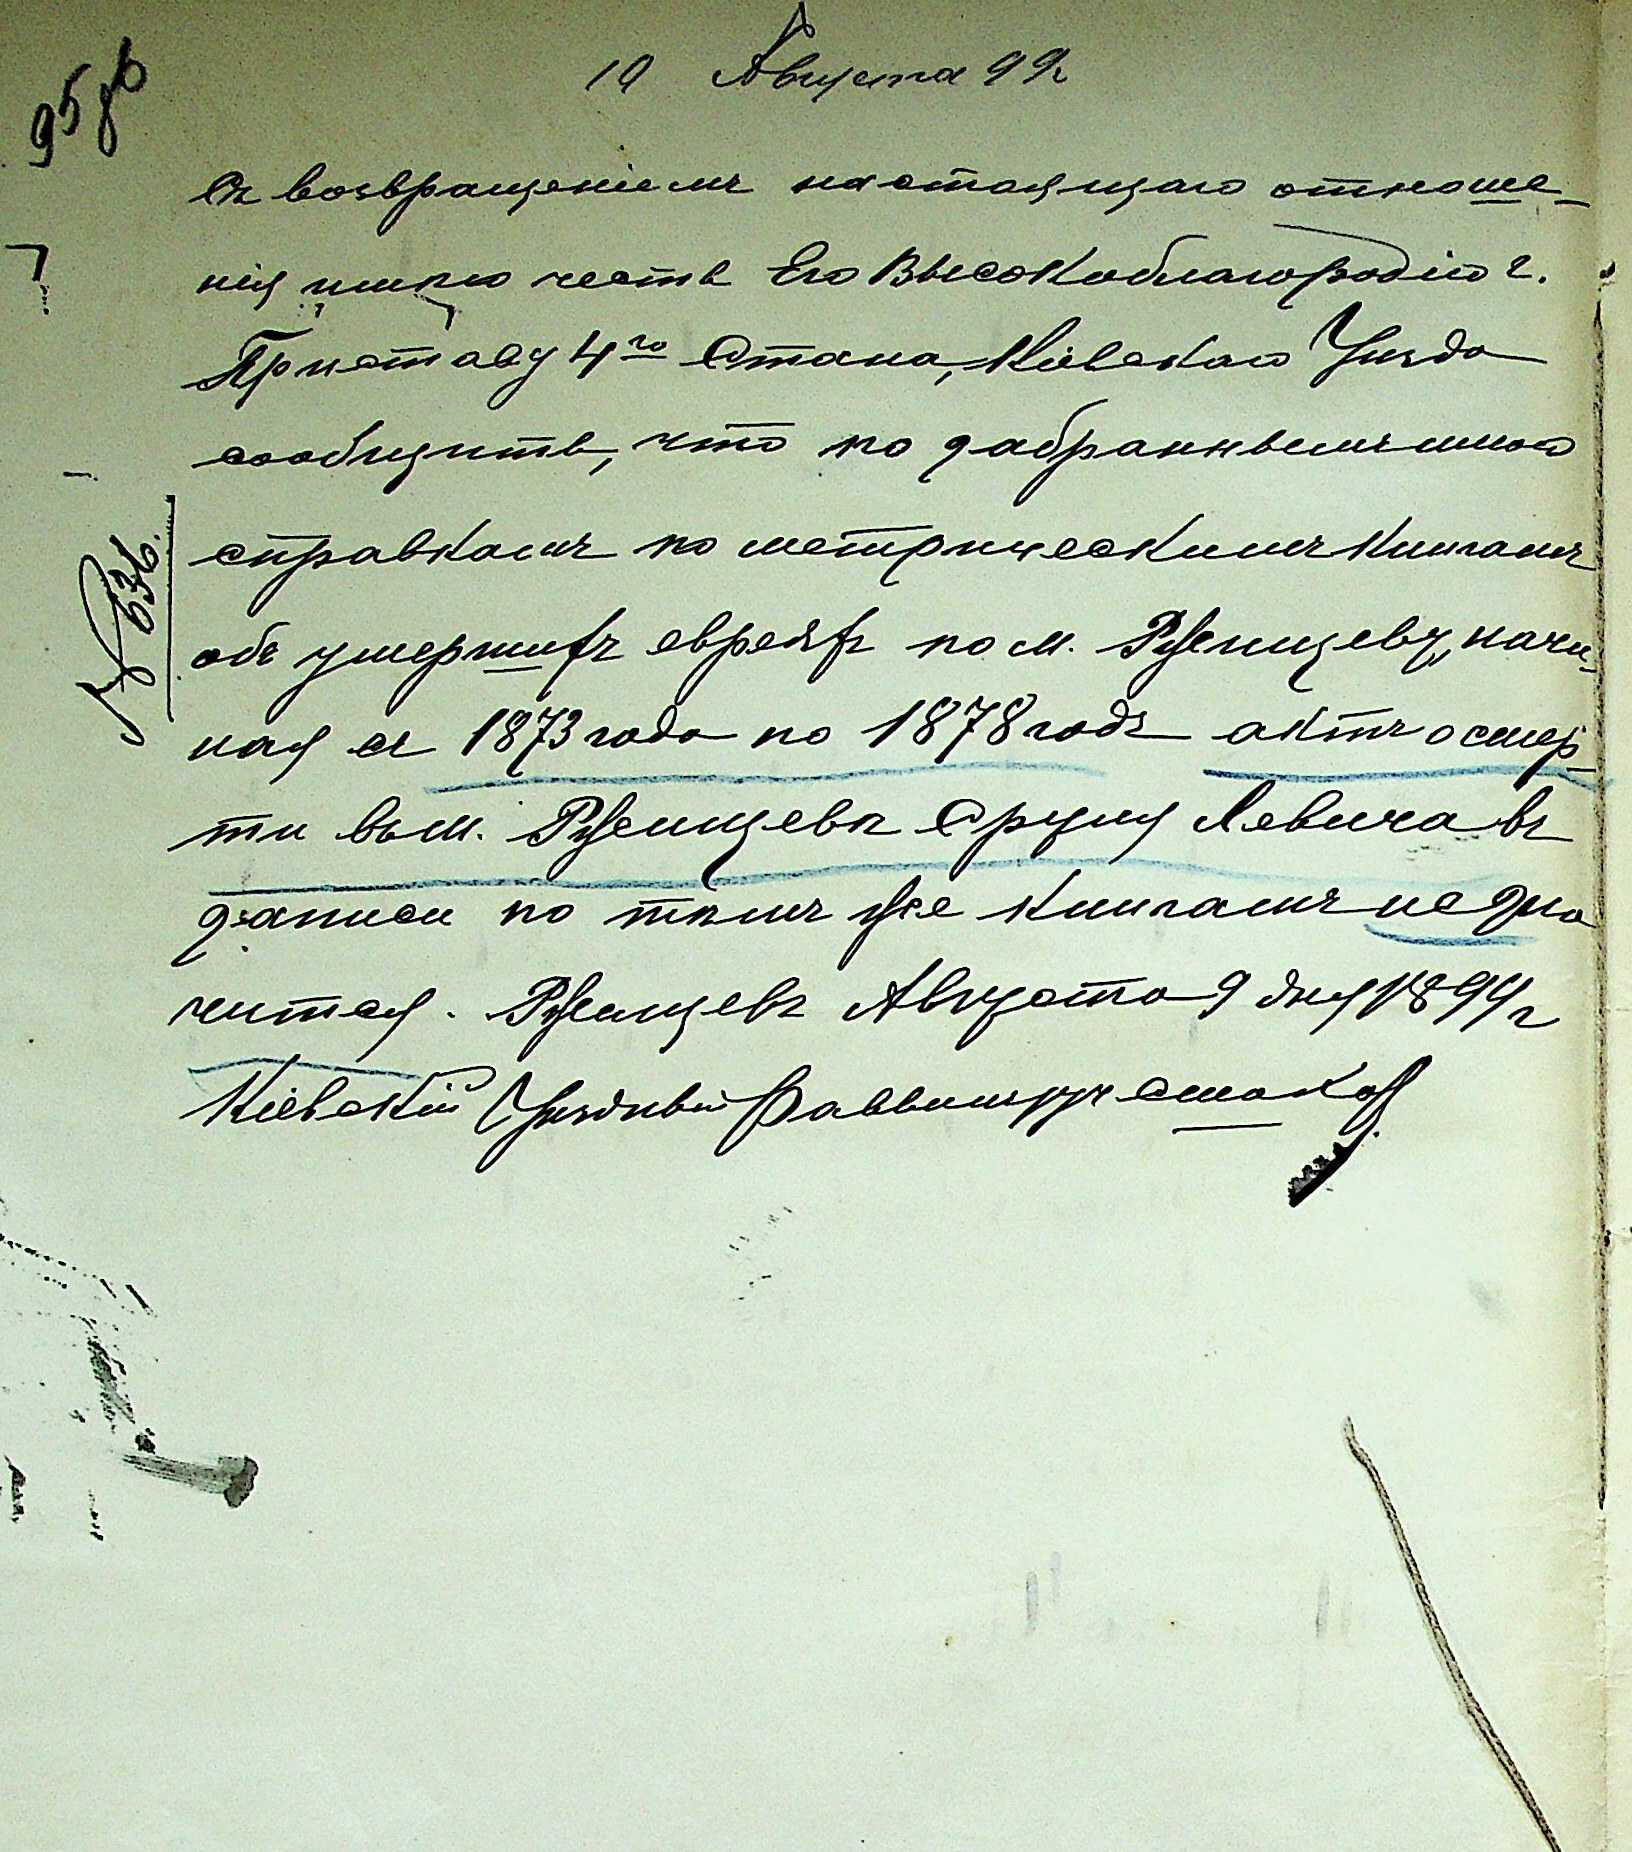 95 об
10 Августа 99 г
Съ возвращеніемъ настоящаго отноше-
нія имѣю честь Его Высокоблагородію г.
Приставу 4го Стана, Кіевскаго Уѣзда
сообщить, что по забраннымъ мною
справкамъ по метрическимъ книгамъ
объ умершихъ евреяхъ по м. Ржищеву, начи-
ная съ 1873 года по 1878 годъ актъ о смер-
ти въ м. Ржищевѣ Сруля Левича въ
записи по тѣмъ же книгамъ не зна
чится. Ржищевъ Августа 9 дня 1899 г
Кіевскій Уѣздный Раввинъ
№ 636.